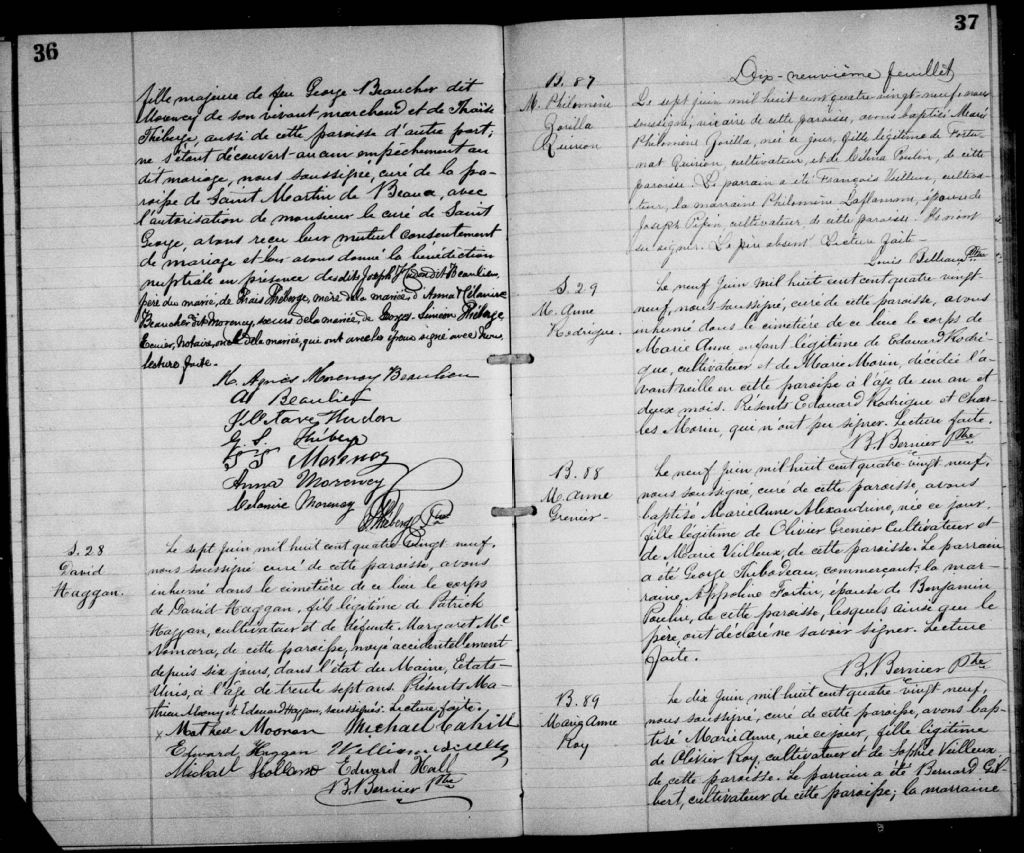 36
fille majeure de feu George Beaucher dit
Morency de son vivant marchand et de Thaïs
Théberge, aussi de cette paroisse d'autre part;
ne s'étant découvert aucun empêchement au
dit mariage, nous soussigné, curé de la pa-
roisse de Saint Martin de Beauce, avec
l'autorisation de monsieur le curé de Saint
George, avons reçu leur mutuel consentement
de mariage et leur avons donné la bénédiction
nuptiale en présence des dits Joseph Hudon dit Beaulieu,
père du marié, de Thaïs Théberge, mère de la mariée, d'Anna & Célanire
Beaucher dit Morency, sœurs de la mariée, de Georges Siméon Théberge
Ecuier, Notaire, oncle de la mariée, qui ont avec les époux signé avec nous.
Lecture faite.
M. Agnès Morency Beaulieu
A Beaulieu
J Octave Hudon
G. S. Théberge
Morency
Anna Morency
Celanire Morency
Théberge Ptre
S. 28
David
Haggan.
Le sept juin mil huit cent quatre vingt neuf,
nous soussigné curé de cette paroisse, avons
inhumé dans le cimetière de ce lieu le corps
de David Haggan, fils légitime de Patrick
Haggan, cultivateur et de défunte Margaret Mc
Namara, de cette paroisse, noyé accidentellement
depuis six jours, dans l'état du Maine, Etats-
Unis, à l'âge de trente sept ans. Présents Ma-
thieu et Edouard Haggan, soussignés. Lecture faite.
x Mathew Mooran Michael Cahill
Edward Haggan William
Michael Holland Edward Hall
B. Bernier Ptre
37
Dix-neuvième feuillet
B. 87
M. Philomène
Gorilla
Quirion
Le sept juin mil huit cent quatre vingt-neuf nous
soussigné, vicaire de cette paroisse, avons baptisé Marie
Philomène Gorilla, née ce jour, fille légitime de Fortu-
nat Quirion, cultivateur, et de Célina Poulin, de cette
paroisse. Le parrain a été François Veilleux, cultiva-
teur, la marraine Philomène Laflamme, épouse de
Joseph Pépin, cultivateur de cette paroisse.
signer. Le père absent. Lecture faite.
Louis Ptre
S. 29
M. Anne
Rodrigue.
Le neuf juin mil huit cent quatre vingt
neuf, nous soussigné, curé de cette paroisse, avons
inhumé dans le cimetière de ce lieu le corps de
Marie Anne enfant légitime de Edouard Rodri-
gue, cultivateur et de Marie Morin, décédée l'a-
vant veille en cette paroisse à l'âge de un an et
deux mois. Présents Edouard Rodrigue et Char-
les Morin, qui n'ont pu signer. Lecture faite.
B. Bernier Ptre
B. 88
M. Anne
Grenier.
Le neuf juin mil huit cent quatre vingt neuf,
nous soussigné, curé de cette paroisse, avons
baptisé Marie Anne Alexandrine, née ce jour,
fille légitime de Olivier Grenier cultivateur et
de Marie Veilleux, de cette paroisse. Le parrain
a été George Thibodeau, commerçant; la mar-
raine, Appoline Fortin, épouse de Benjamin
Poulin, de cette paroisse, lesquels ainsi que le
père, ont déclaré ne savoir signer. Lecture
faite.
B. Bernier Ptre
B. 89
Marie Anne
Roy
Le dix juin mil huit cent quatre vingt neuf,
nous soussigné, curé de cette paroisse, avons bap-
tisé Marie Anne, née ce jour, fille légitime
de Olivier Roy, cultivateur et de Sophie Veilleux
de cette paroisse. Le parrain a été Bernard Gil-
bert, cultivateur de cette paroisse; la marraine